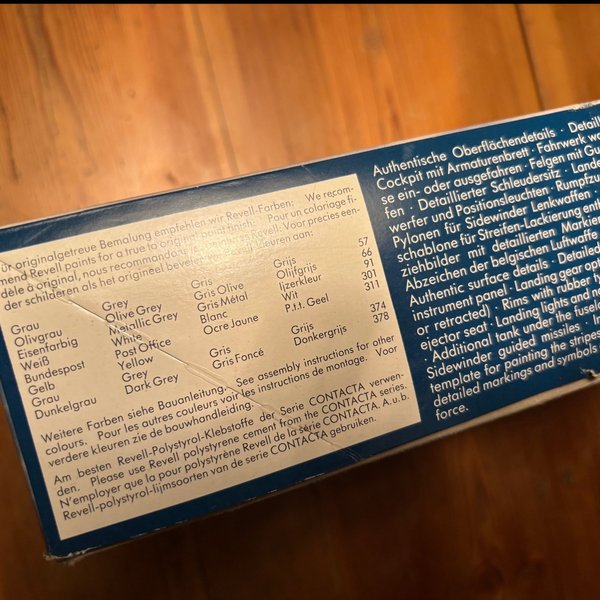 Für originalgetreue Bemalung empfehlen wir Revell-Farben: We recom-
mend Revell paints for a true to original paint finish: Pour un coloriage fi-
dèle à original, nous recommandons Revell: Voor precies een-
der schilderen als het origineel bevelen kleuren aan:
Grau Grey Gris Grijs 57
Olivgrau Olive Grey Gris Olive Olijfgris 66
Eisenfarbig Metallic Grey Gris Métal Ijzerkleur 91
Weiß White Blanc Wit 301
Bundespost Post Office Ocre Jaune P.t.t. Geel 311
Gelb Yellow
Grau Grey Gris Grijs 374
Dunkelgrau Dark Grey Gris Foncé Donkergrijs 378
Weitere Farben siehe Bauanleitung. See assembly instructions for other
colours. Pour les autres couleurs voir les instructions de montage. Voor
verdere kleuren zie de bouwhandleiding.
Am besten Revell-Polystyrol-Klebstoffe der Serie CONTACTA verwen-
den. Please use Revell polystyrene cement from the CONTACTA series.
N'employer que la pour polystyrène Revell de la série CONTACTA. A.u.b.
Revell-polystyrol-lijmsoorten van de serie CONTACTA gebruiken.
Authentische Oberflächendetails · Detaill
Cockpit mit Armaturenbrett · Fahrwerk wa
se ein- oder ausgefahren · Felgen mit Gu
fen · Detaillierter Schleudersitz · Lande
werfer und Positionsleuchten · Rumpfzu
Pylonen für Sidewinder Lenkwaffen ·
schablone für Streifen-Lackierung enth
ziehbilder mit detaillierten Markier
Abzeichen der belgischen Luftwaffe
Authentic surface details · Detailed
instrument panel · Landing gear opt
or retracted) · Rims with rubber ty
ejector seat · Landing lights and n
· Additional tank under the fusela
Sidewinder guided missiles ·
template for painting the stripes
detailed markings and symbols
force.